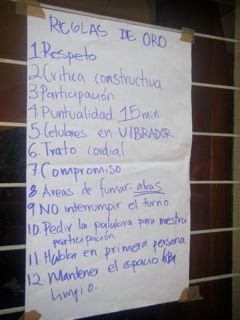 REGLAS DE ORO
1. Respeto
2 Crítica constructiva
3 Participación
4 Puntualidad: 15 min
5 Celulares en VIBRADOR
6. Trato cordial
7. Compromiso
8. Areas de fumar:
9 NO interrumpir el turno.
10. Pedir la palabra para nuestra
participación.
11. Hablar en primera persona
12. Mantener el espacio
limpio.